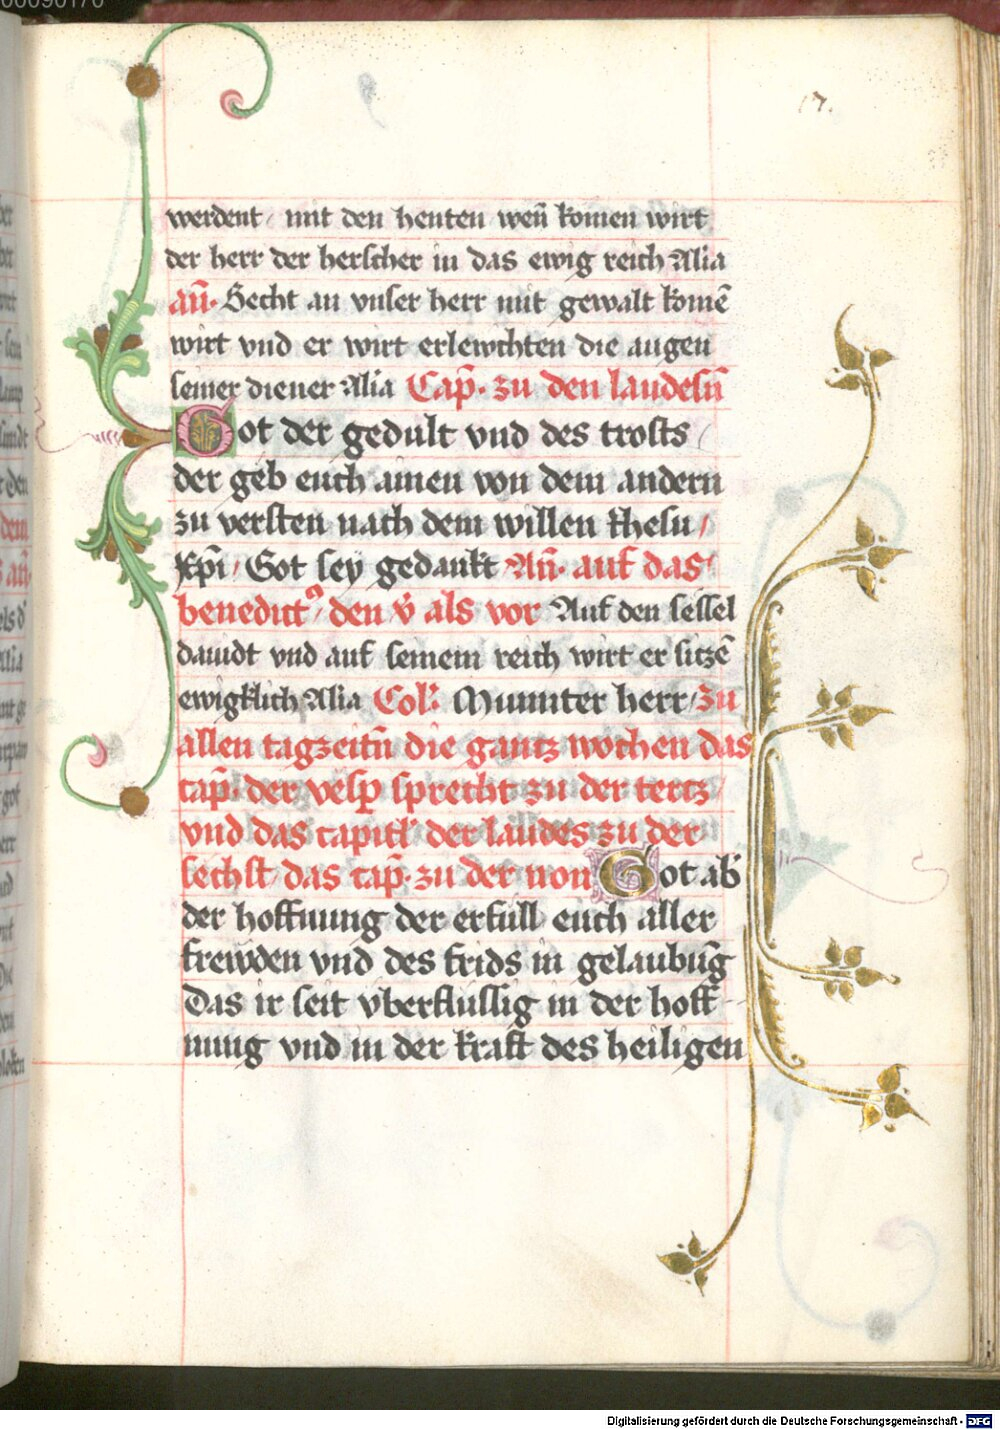 17.
werdent / mit den henten weñ komen wirt
der herr der herscher in das ewig reich Alia
an̄. Secht an vnser herr mit gewalt komē
wirt vnd er wirt erlewchten die augen
seiner diener Alia Cap̄. zu den laudesn̄
Got der gedult vnd des trosts /
der geb euch ainen von dem andern
zu versten nach dem willen Jhesu /
xp̄i / Got sey gedankt An̄. auf das
benedict9 / den v̊ als vor Auf den sessel
dauidt vnd auf seinem reich wirt er sitzē
ewigklich Alia Col̄. Mumter herr / zu
allen tagzeitn̄ die gantz wochen das
cap̄. der vesp̄ sprecht zu der tertz
vnd das capitl̄ der laudes zu der
sechst / das cap̄. zu der non Got ab̄
der hoffnung der erfull euch aller
frewden vnd des frids in gelaubūg
Das ir seit vberflussig in der hoff
nung vnd in der kraft des heiligen
Digitalisierung gefördert durch die Deutsche Forschungsgemeinschaft - DFG